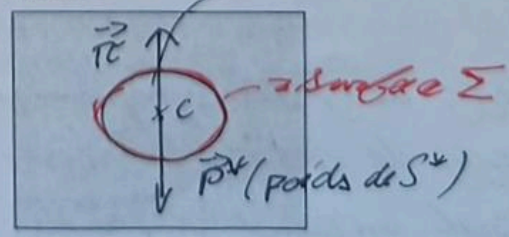 π⃗
→ surface Σ
C
P⃗* (poids de S*)